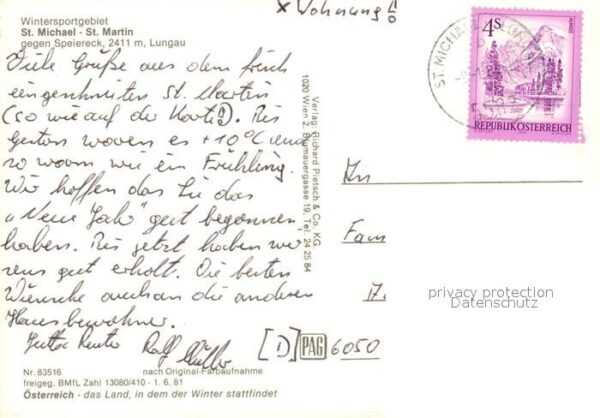 x Wohnung!
Wintersportgebiet
St. Michael · St. Martin
gegen Speiereck, 2411 m, Lungau
Viele Grüße aus dem frisch
eingeschneiten St. Martin
(so wie auf der Karte!). Bis
gestern waren es +10°C und
so warm wie ein Frühling.
Wir hoffen das Sie das
"Neue Jahr" gut begonnen
haben. Bis jetzt haben wir
uns gut erholt. Die besten
Wünsche auch an die anderen
Hausbewohner.
Jutta Reuter Ralf
Nr. 83516 nach Original-Farbaufnahme
freigeg. BMfL Zahl 13080/410 - 1. 6. 81
Österreich - das Land, in dem der Winter stattfindet
Verlag Richard Pietsch & Co. KG.
1020 Wien 2, Blumauergasse 19, Tel. 24 25 84
4S
REPUBLIK ÖSTERREICH
ST. MICHAEL
An
Fam
privacy protection
Datenschutz
[D] PAG 6050